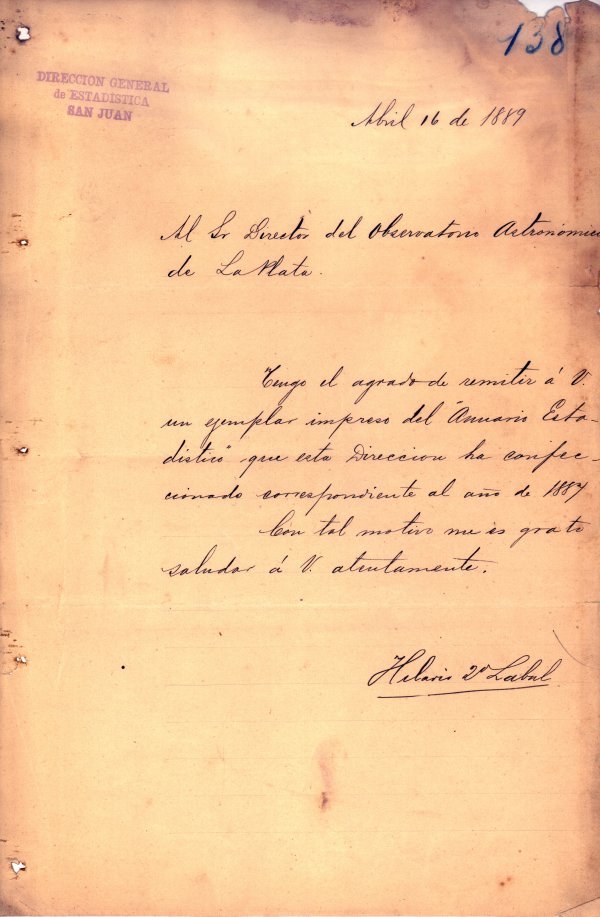 138
DIRECCION GENERAL
de ESTADÍSTICA
SAN JUAN
Abril 16 de 1889
Al Sr Director del Observatorio Astronómico
de La Plata.
Tengo el agrado de remitir á V.
un ejemplar impreso del "Anuario Esta-
distico" que esta Direccion ha confec-
cionado correspondiente al año de 1887
Con tal motivo me es grato
saludar á V. atentamente.
Hilario 2º